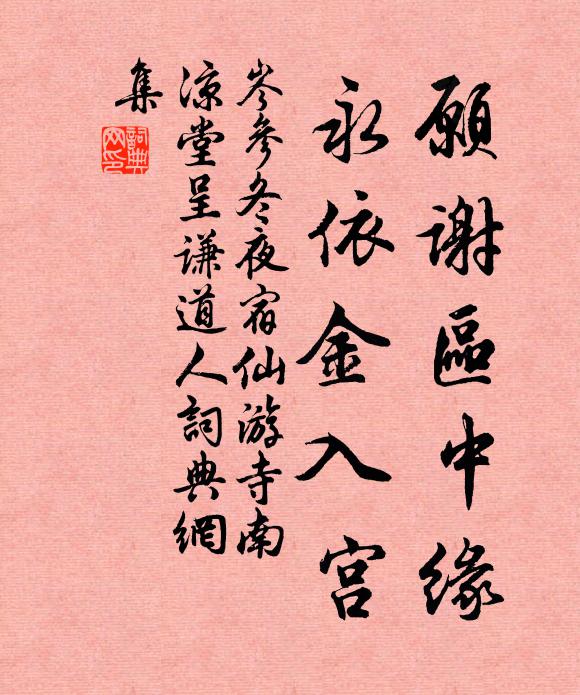 願謝區中緣
永依金入宮
岑參冬夜宿仙游寺南
涼堂呈謙道人詞典網
集
詞典網印